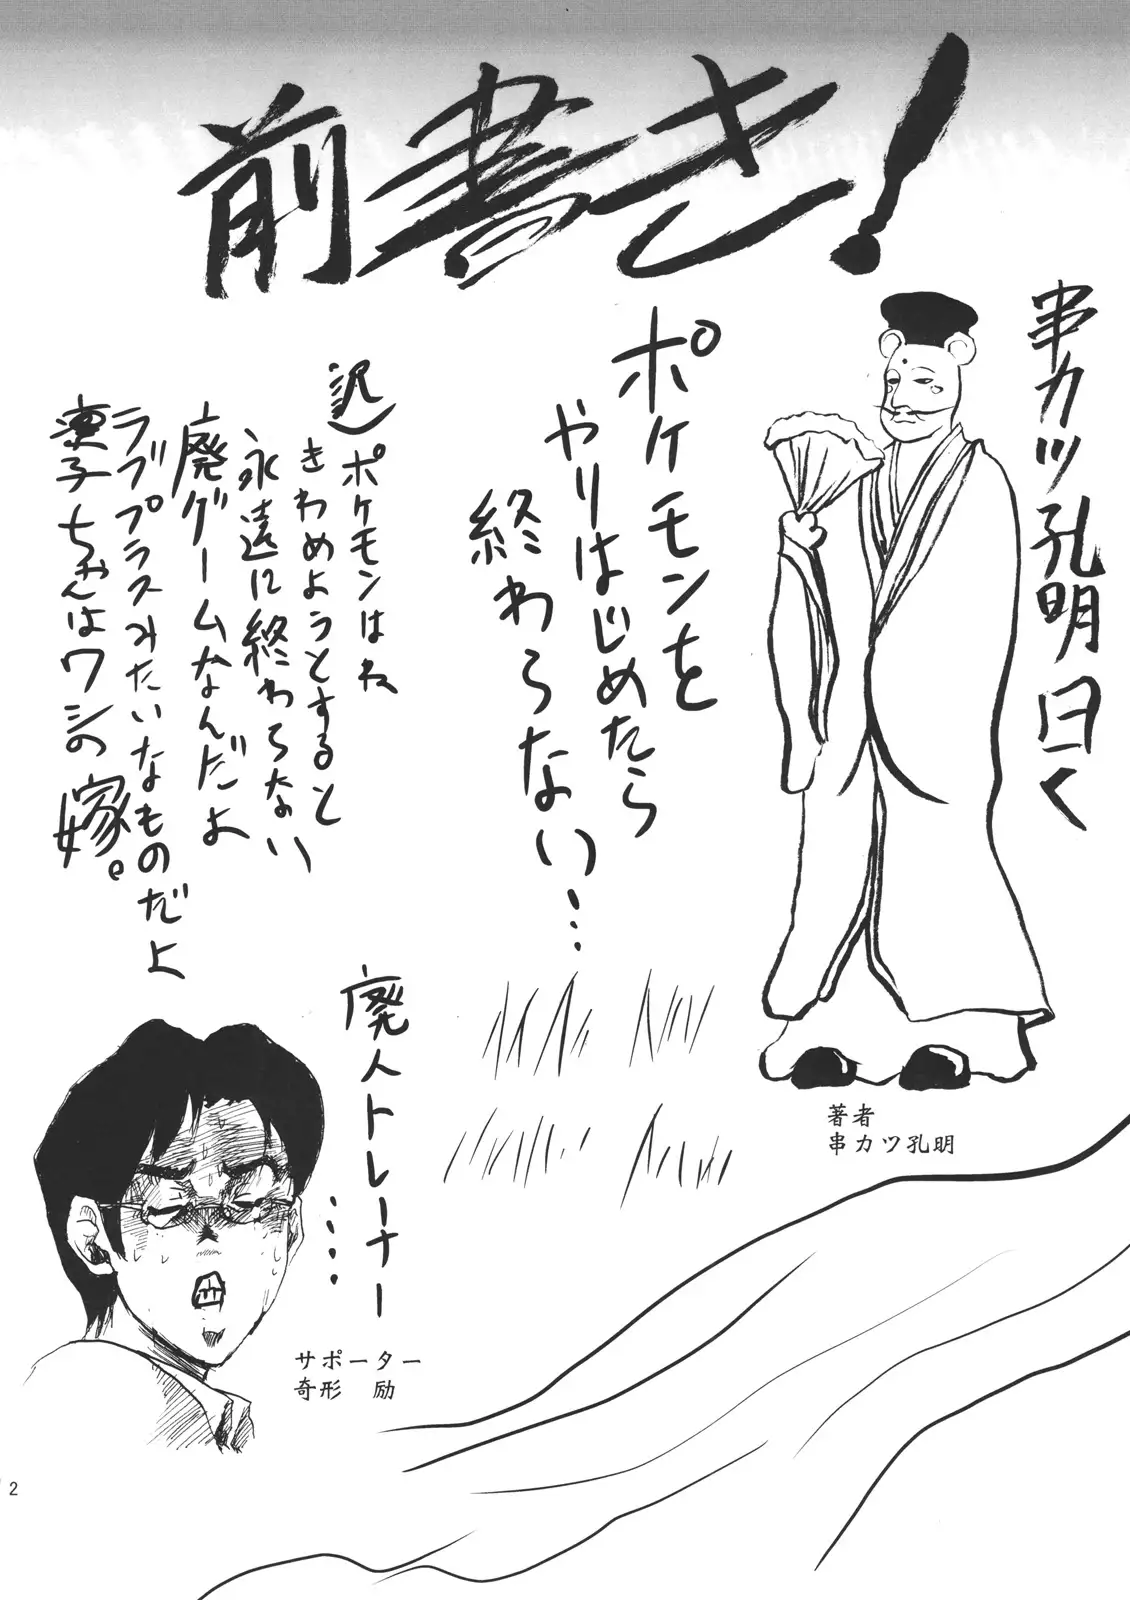 前書き!
串カツ孔明曰く
ポケモンを
やりはじめたら
終わらない…
訳)ポケモンはね
きわめようとすると
永遠に終わらない
廃ゲームなんだよ
ラブプラスみたいなものだよ
凛子ちゃんはワシの嫁。
著者
串カツ孔明
廃人トレーナー
‥‥
サポーター
奇形 励
2